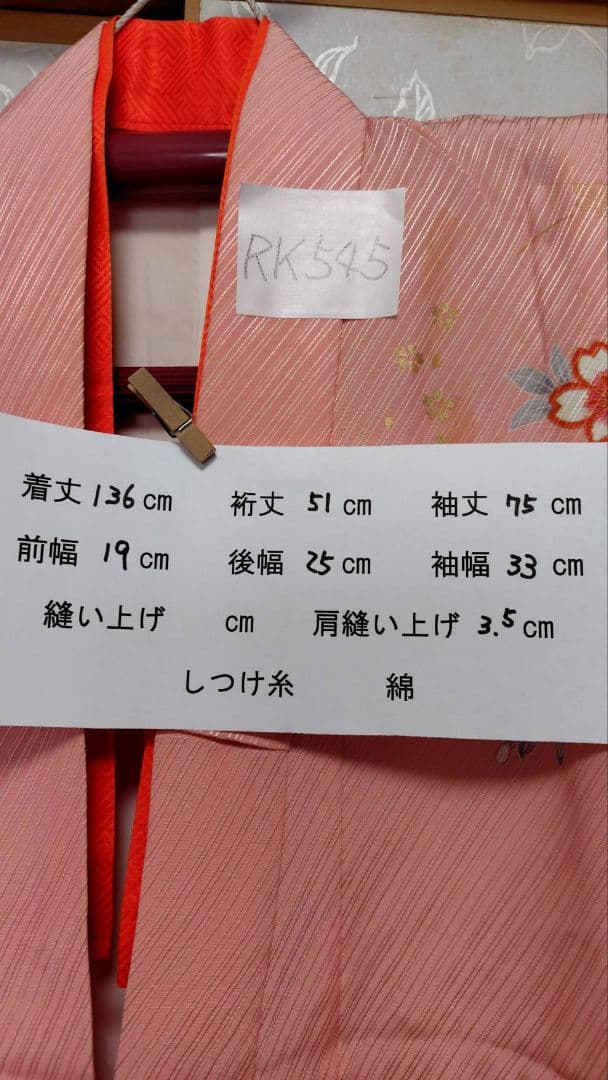 RK545
着丈 136 cm 裄丈 51 cm 袖丈 75 cm
前幅 19 cm 後幅 25 cm 袖幅 33 cm
縫い上げ cm 肩縫い上げ 3.5 cm
しつけ糸 綿